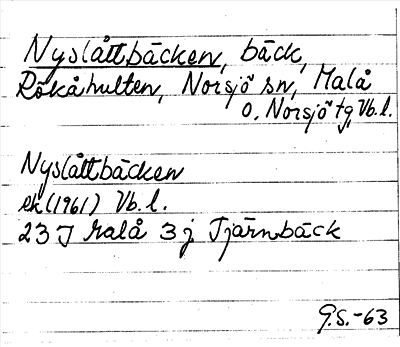 Nyslåttbäcken, bäck,
Rökåhulten, Norsjö sn, Malå
o. Norsjö tg, Vb.l.
Nyslåttbäcken
ek (1961) Vb.l.
23 J Malå 3 j Tjärnbäck
G.S.-63